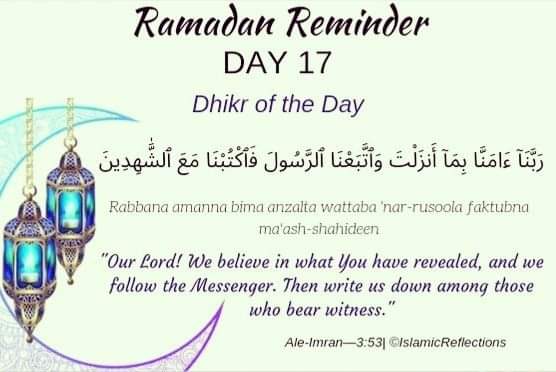 Ramadan Reminder
DAY 17
Dhikr of the Day
رَبَّنَآ ءَامَنَّا بِمَآ أَنزَلْتَ وَٱتَّبَعْنَا ٱلرَّسُولَ فَٱكْتُبْنَا مَعَ ٱلشَّٰهِدِينَ
Rabbana amanna bima anzalta wattaba 'nar-rusoola faktubna
ma'ash-shahideen
"Our Lord! We believe in what You have revealed, and we
follow the Messenger. Then write us down among those
who bear witness."
Ale-Imran—3:53| ©IslamicReflections